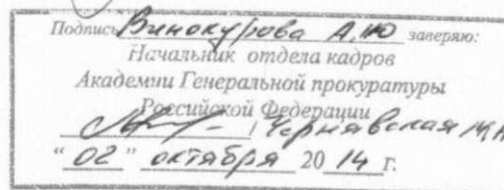 Подпись Винокурова А.Ю заверяю:
Начальник отдела кадров
Академии Генеральной прокуратуры
Российской Федерации
Чернявская М.А
"02" октября 2014 г.